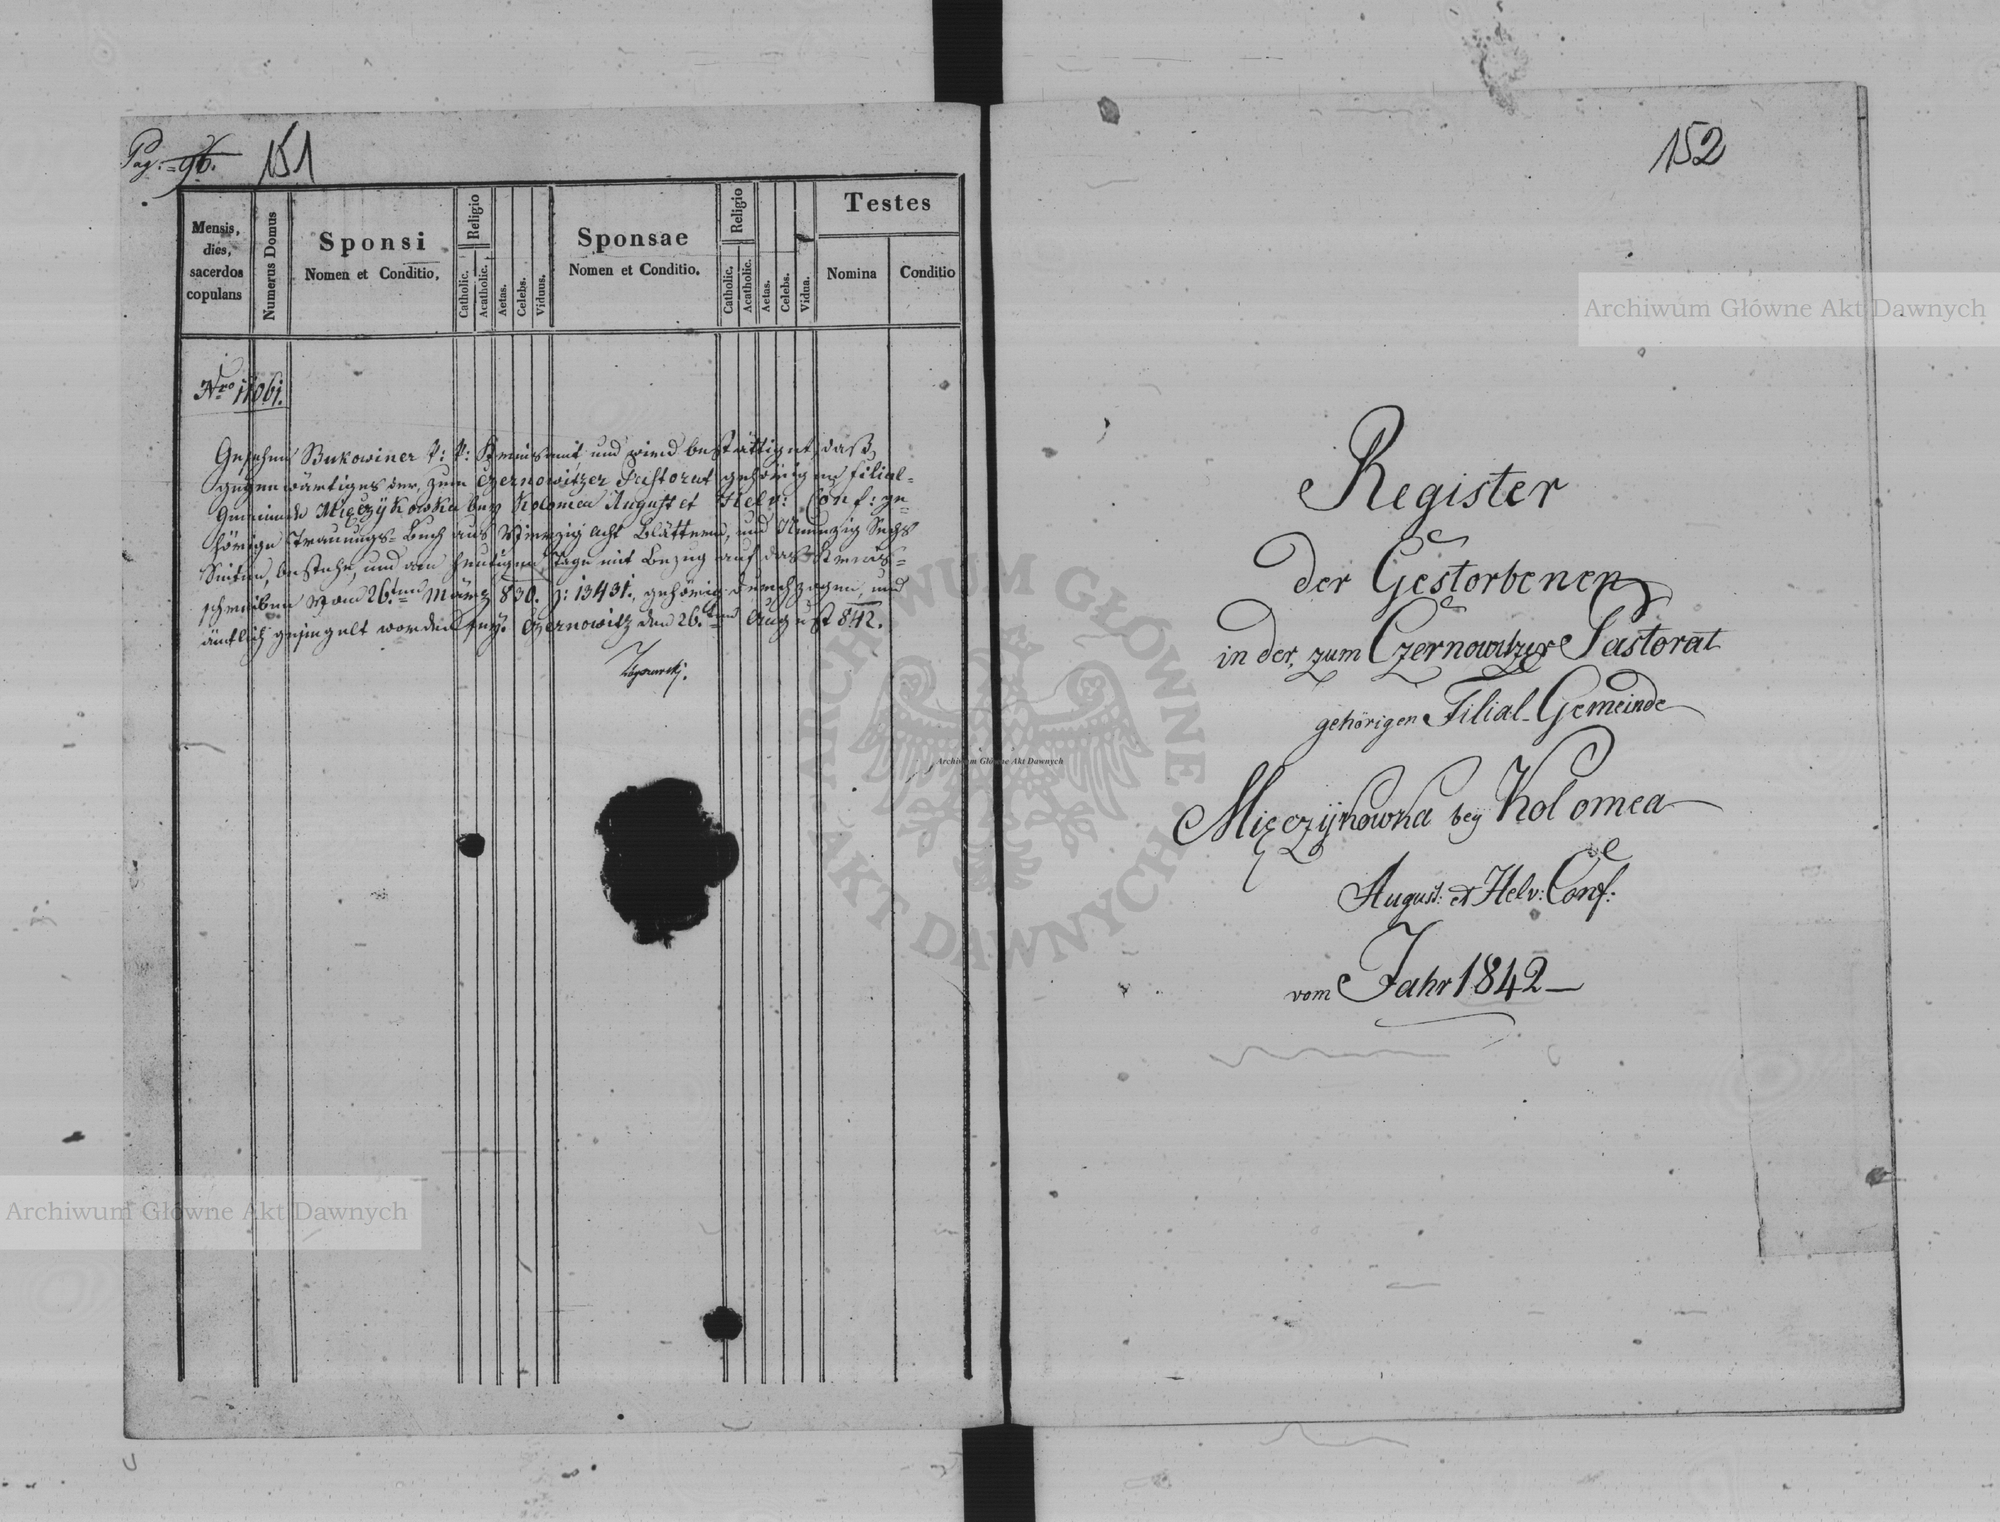 Pag: 96. 151
Mensis,
dies,
sacerdos
copulans
Numerus Domus
Sponsi
Nomen et Conditio,
Religio
Catholic.
Acatholic.
Aetas.
Celebs.
Viduus.
Sponsae
Nomen et Conditio.
Religio
Catholic.
Acatholic.
Aetas.
Celebs.
Vidua.
Testes
Nomina
Conditio
Nro 11061.
Gesehen Bukowiner k: k: Kreisamt und wird bestättiget, daß
gegenwärtiges der, zum Czernowitzer Pastorat gehörigen Filial-
Gemeinde Mięczÿkowka bey Kolomea August et Helv: Conf: ge-
hörige Trauungs-Buch aus Vierzig Acht Blättern, und Neunzig Sechs
Seiten, bestehe, und am heutigen Tage mit Bezug auf das Kreis-
schreiben vom 26.ten März 830. Z: 13431., gehörig durchzogen, und
ämtlich gesiegelt worden sey. Czernowitz den 26.ten August 842.
152
Register
der Gestorbenen
in der, zum Czernowitzer Pastorat
gehörigen Filial-Gemeinde
Mięczÿkowka bey Kolomea
August: et Helv: Conf:
vom Jahr 1842
Archiwum Główne Akt Dawnych
Archiwum Główne Akt Dawnych
Archiwum Główne Akt Dawnych
ARCHIWUM GŁÓWNE AKT DAWNYCH